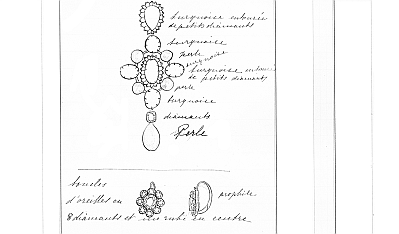 turquoise entourée
de petits diamants
turquoise
perle
turquoise
turquoise entouree
de petits diamants
perle
turquoise
diamants
Perle
boucles
d'oreilles en
8 diamants et un rubi en centre
prophile